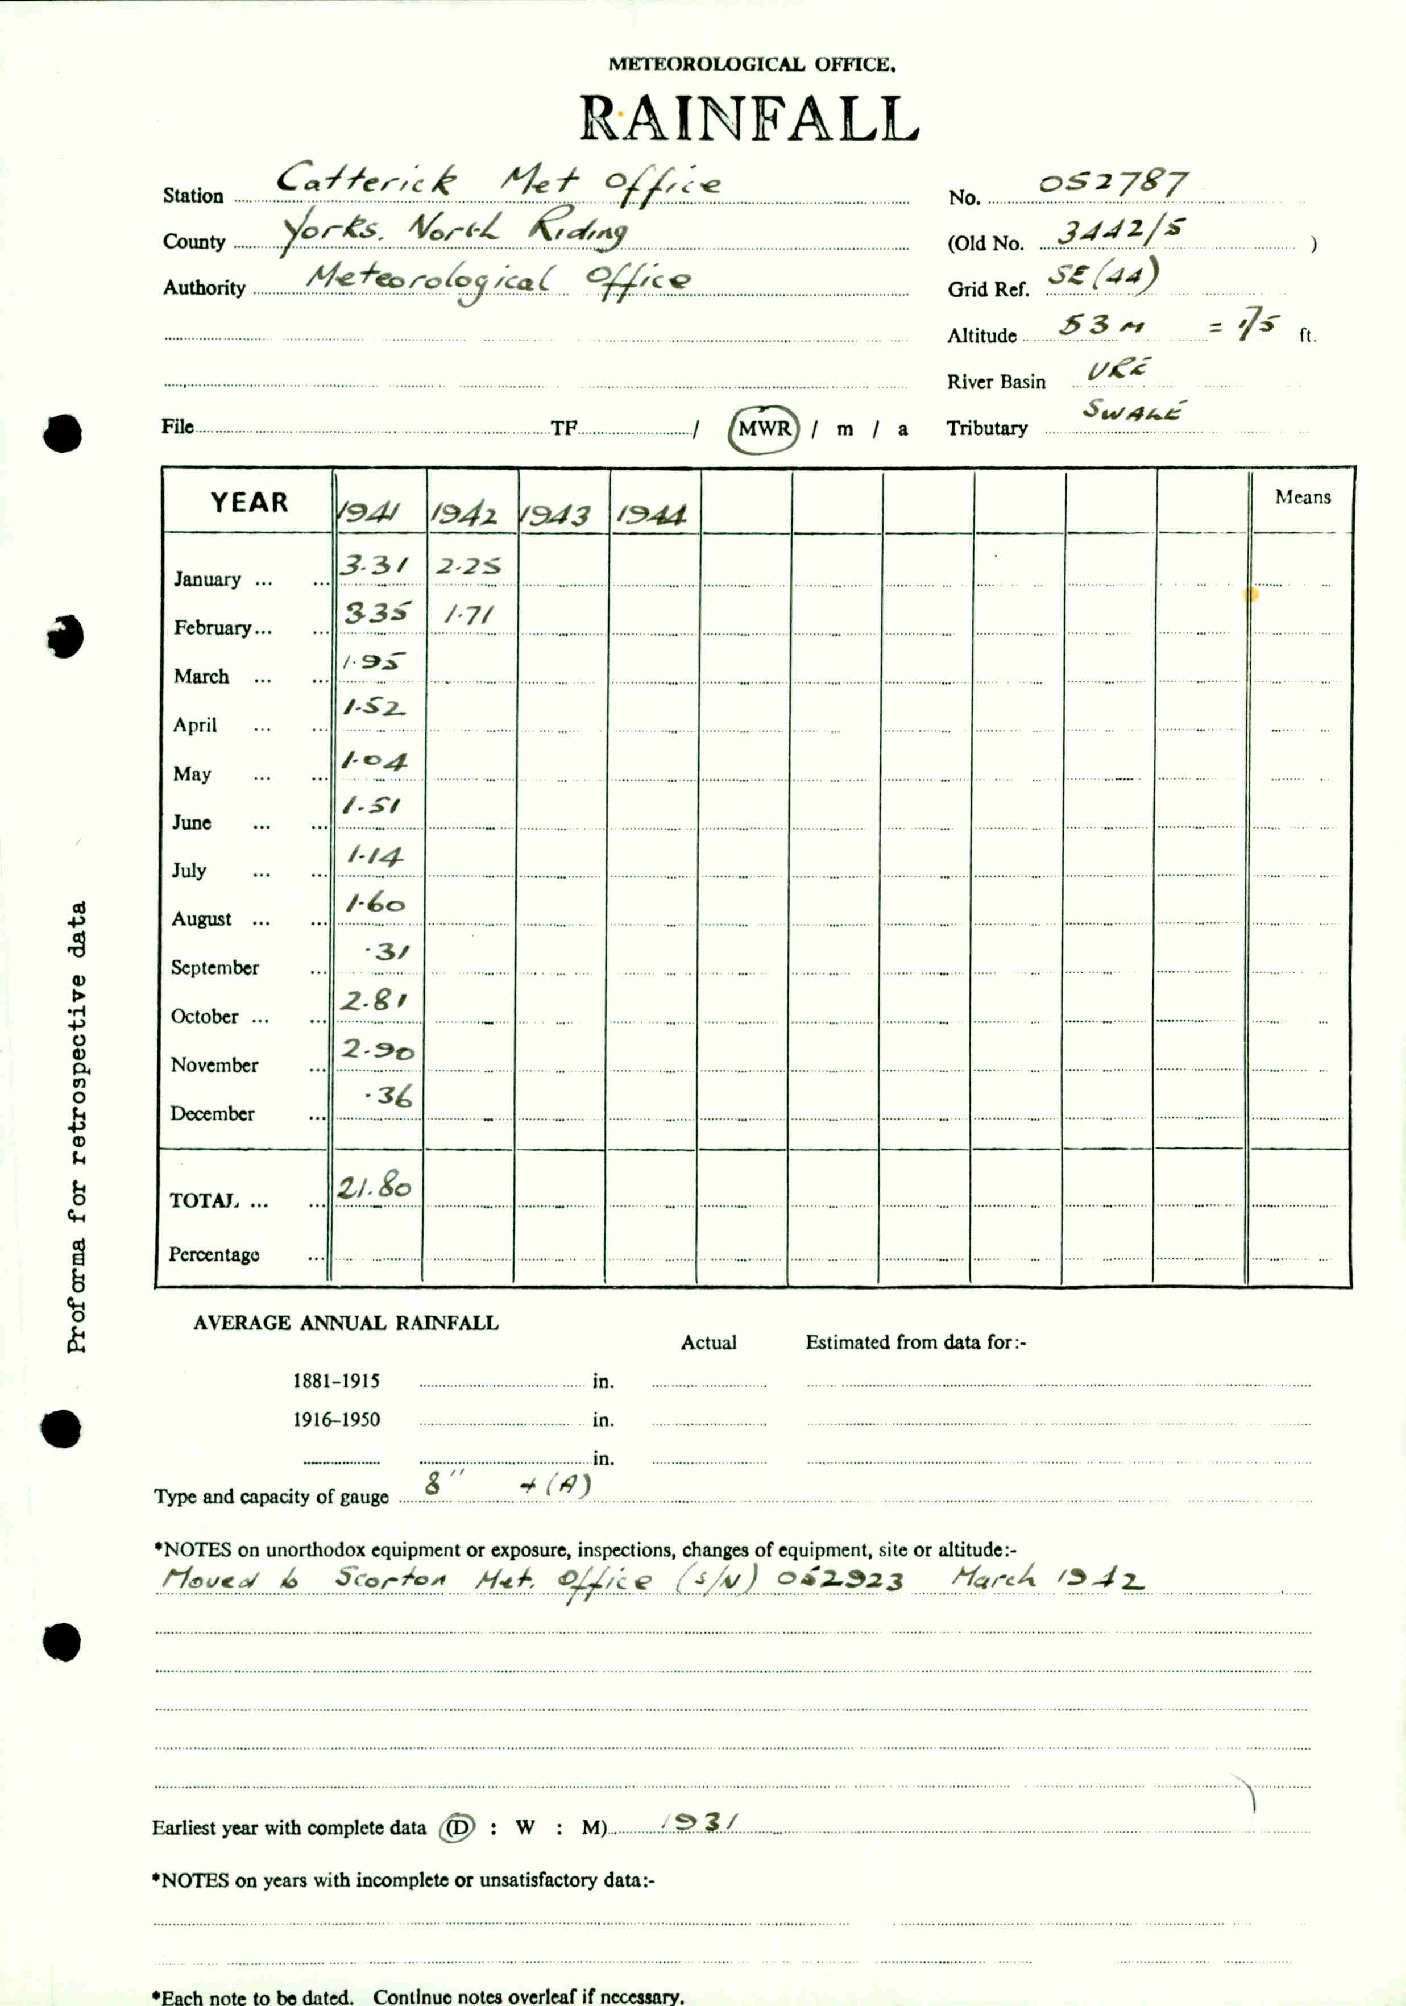 METEOROLOGICAL OFFICE.
RAINFALL
Station Catterick Met Office No. 052787
County Yorks. North Riding (Old No. 3442/5 )
Authority Meteorological Office Grid Ref. SE(44)
Altitude 53 M = 175 ft.
River Basin URE
File TF / MWR / m / a Tributary SWALE
YEAR 1941 1942 1943 1944 Means
January ... ... 3.31 2.25
February... ... 3.35 1.71
March ... ... 1.95
April ... ... 1.52
May ... ... 1.04
June ... ... 1.51
July ... ... 1.14
August ... ... 1.60
September ... .31
October ... ... 2.81
November ... 2.90
December ... .36
TOTAL ... ... 21.80
Percentage ...
Proforma for retrospective data
AVERAGE ANNUAL RAINFALL
Actual Estimated from data for:-
1881–1915 in.
1916–1950 in.
in.
Type and capacity of gauge 8" + (A)
*NOTES on unorthodox equipment or exposure, inspections, changes of equipment, site or altitude:-
Moved to Scorton Met. Office (S/N) 052923 March 1942
Earliest year with complete data (D : W : M) 1931
*NOTES on years with incomplete or unsatisfactory data:-
*Each note to be dated. Continue notes overleaf if necessary.